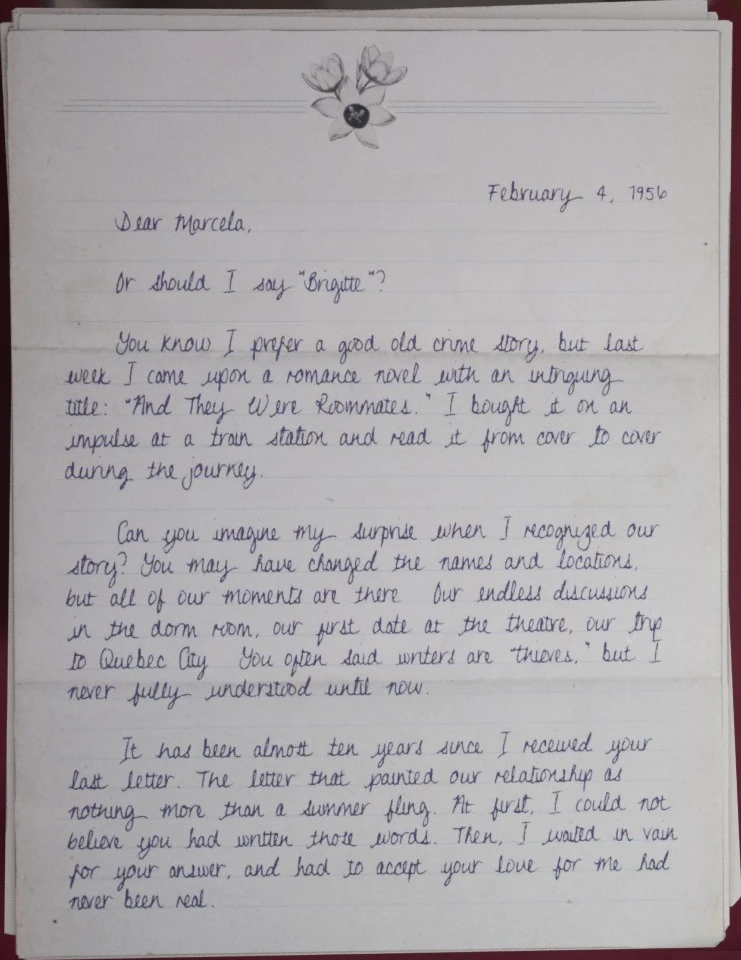 February 4, 1956
Dear Marcela,
Or should I say "Brigitte"?
You know I prefer a good old crime story, but last
week I came upon a romance novel with an intriguing
title: "And They Were Roommates." I bought it on an
impulse at a train station and read it from cover to cover
during the journey.
Can you imagine my surprise when I recognized our
story? You may have changed the names and locations,
but all of our moments are there Our endless discussions
in the dorm room, our first date at the theatre, our trip
to Quebec City You often said writers are "thieves," but I
never fully understood until now.
It has been almost ten years since I received your
last letter. The letter that painted our relationship as
nothing more than a summer fling. At first, I could not
believe you had written those words. Then, I waited in vain
for your answer, and had to accept your love for me had
never been real.